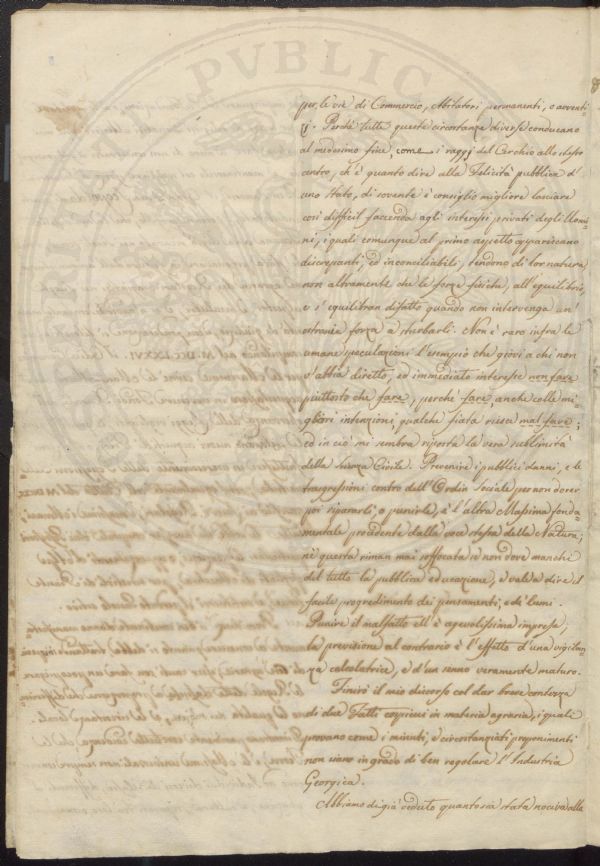 PVBLIC
per le vie di Commercio, Abitatori permanenti, o avventi=
zj. Perchè tutte queste circostanze diverse conducano
al medesimo fine, come i raggi del Cerchio allo stesso
centro, ch'è quanto dire alla Felicità pubblica d'
uno Stato, di sovente è consiglio migliore lasciare
così difficil faccenda agli interessi privati degli Uomi=
ni, i quali comunque al primo aspetto appariscano
discrepanti, ed inconciliabili, tendono di lor natura
non altramente che le forze fisiche, all'equilibrio,
e s'equilibran difatto quando non intervenga un'
estranea forza a sturbarli. Non è raro infra le
umane speculazioni l'esempio che giovi a chi non
v'abbia diretto, ed immediato interesse non fare
piuttosto che fare, perchè fare, anche colle mi=
gliori intenzioni, qualche fiata riesce mal fare;
ed in ciò mi sembra riposta la vera sublimità
della Scienza Civile. Prevenire i pubblici danni, e le
trasgressioni contro dell'Ordin sociale per non dover
poi ripararli, o punirle, è l'altra Massima fonda=
mentale procidente dalla voce stessa della Natura;
nè questa riman mai soffocata se non dove manchi
del tutto la pubblica educazione, o val a dire il
facile progredimento dei pensamenti, e de' lumi.
Punire il malfatto ell'è agevolissima impresa,
la previsione al contrario è l'effetto d'una vigilan=
za calcolatrice, e d'un senno veramente maturo.
Finirò il mio discorso col dar breve contezza
di due Fatti cospicui in materia agraria, i quali
provano come i minuti, e circostanziati proponimenti
non siano in grado di ben regolare l'Industria
Georgica.
Abbiamo di già veduto quanto sia stata nociva alla